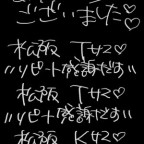 ございました♡
松阪 T4Z♡
"リピート感謝です"
松阪 T4Z♡
"リピート感謝です"
松阪 K4Z♡